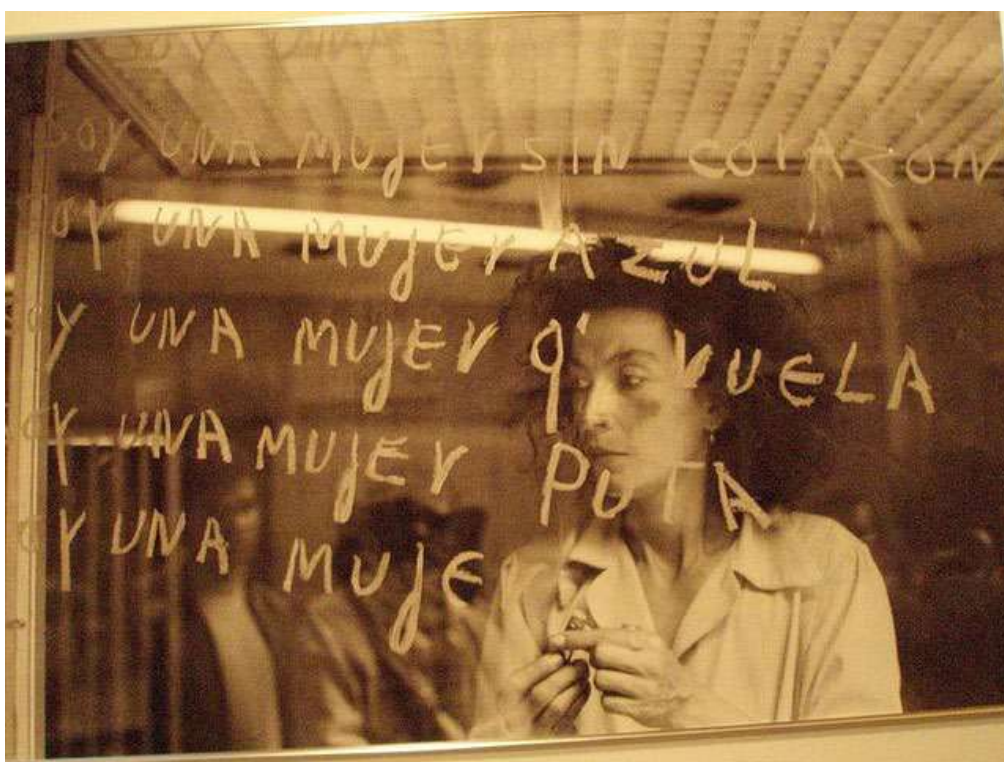 SOY UNA
SOY UNA MUJER SIN CORAZÓN
SOY UNA MUJER AZUL
OY UNA MUJER Q' VUELA
OY UNA MUJER PUTA
OY UNA MUJE